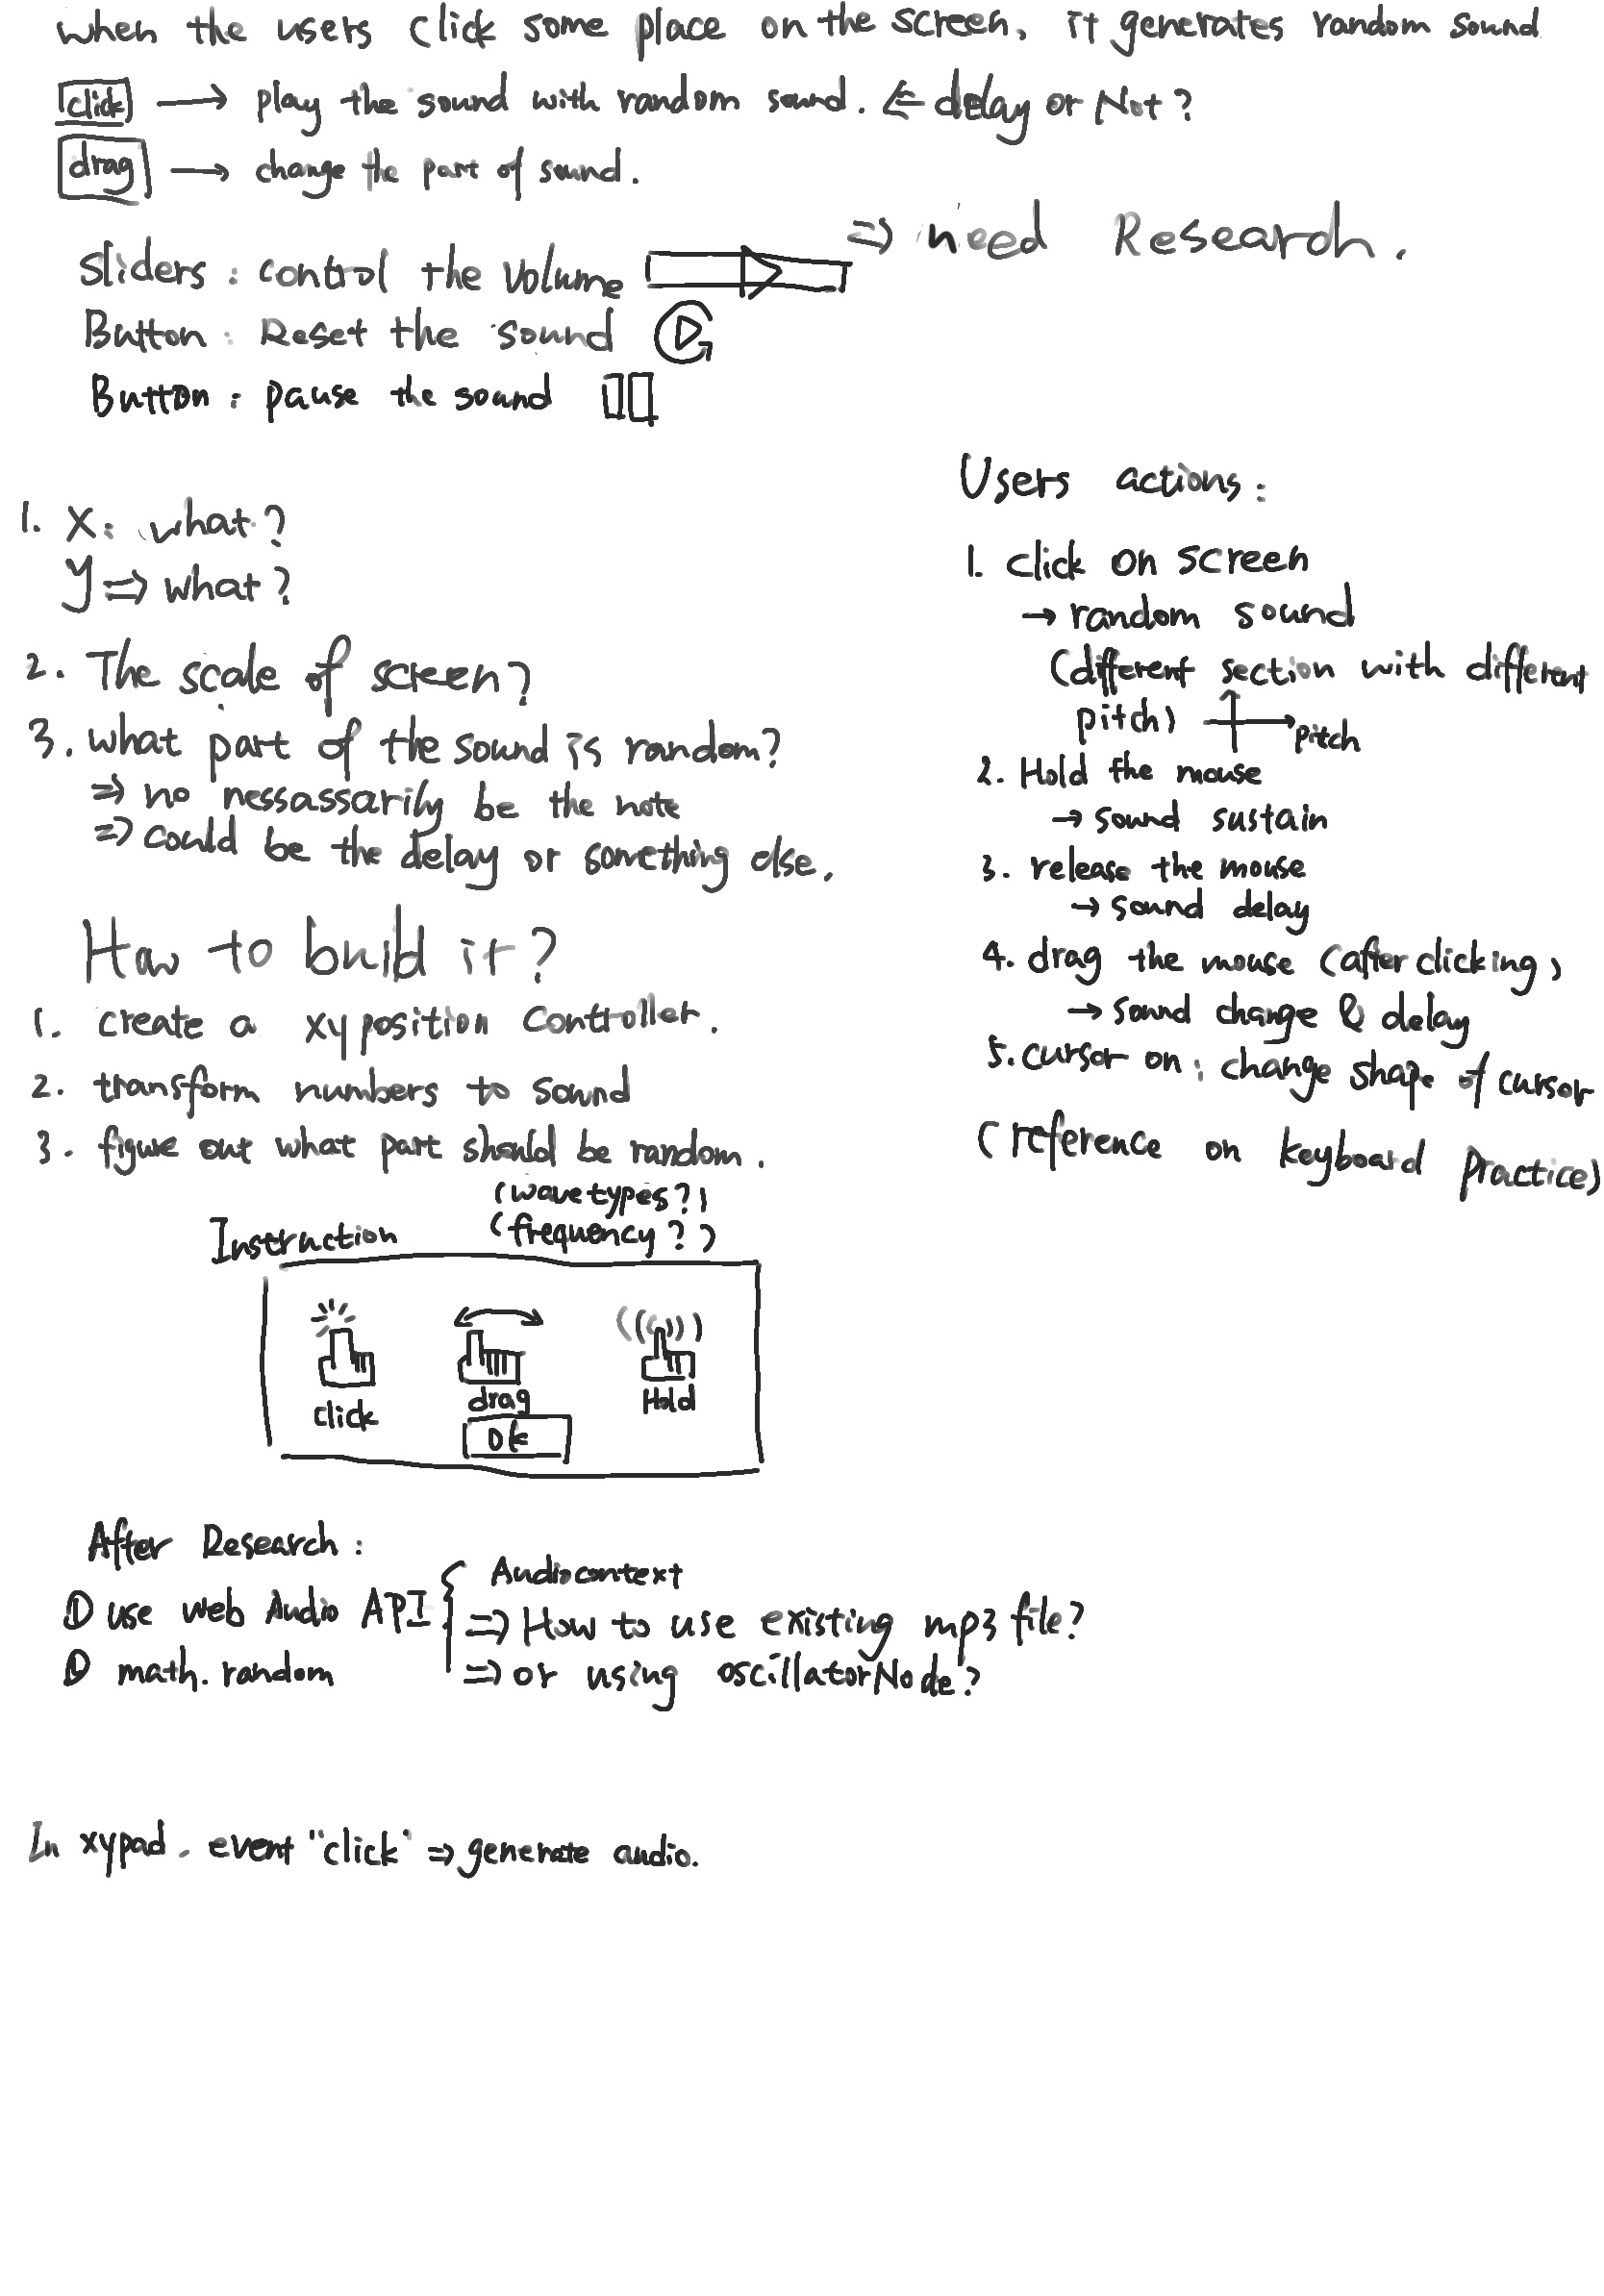 when the users click some place on the screen, it generates random sound
click → play the sound with random sound. ⇐ delay or Not?
drag → change the part of sound.
⇒ need Research.
Sliders: control the volume
Button: Reset the sound
Button: pause the sound
1. X: what?
y ⇒ what?
2. The scale of screen?
3. what part of the sound is random?
⇒ no nessassarily be the note
⇒ could be the delay or something else.
How to build it?
1. create a xy position controller.
2. transform numbers to sound
3. figure out what part should be random.
(wave types?)
(frequency?)
Users actions:
1. click on screen
→ random sound
(different section with different
pitch)
pitch
2. Hold the mouse
→ sound sustain
3. release the mouse
→ sound delay
4. drag the mouse (after clicking)
→ sound change & delay
5. cursor on: change shape of cursor
(reference on keyboard practice)
Instruction
click drag Hold
OK
After Research:
① use web Audio API { Audiocontext
⇒ How to use existing mp3 file?
⇒ or using oscillatorNode?
① math.random
In xypad. event "click" ⇒ generate audio.